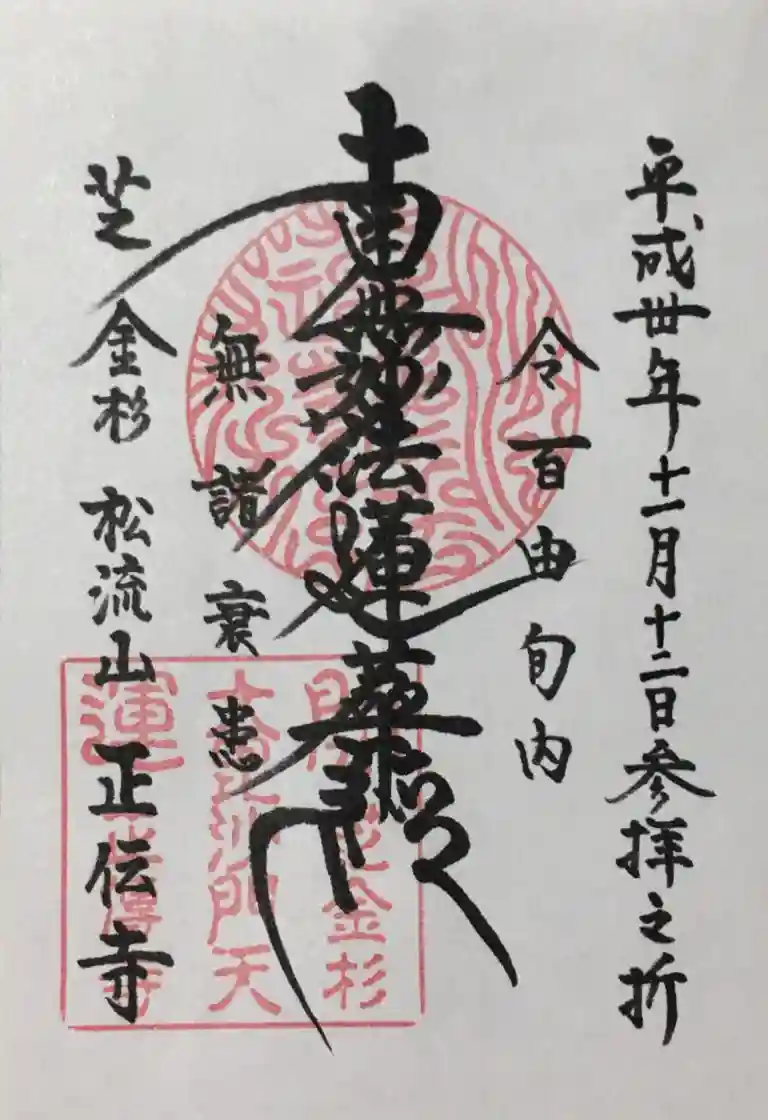 平成丗年十一月十二日参拝之折
令百由旬内
南無妙法蓮華経
無諸衰患
芝金杉松流山正伝寺
開運
大毘沙門天
芝金杉
正傳寺